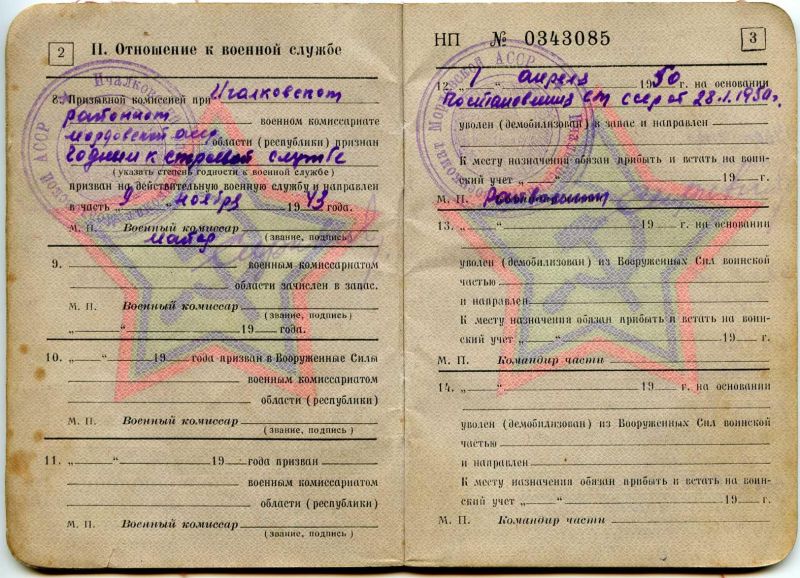 2 II. Отношение к военной службе
8. Призывной комиссией при Ичалковском
районном военном комиссариате
мордовской асср области (республики) признан
годным к строевой службе
(указать степень годности к военной службе)
призван на действительную военную службу и направлен
в часть „ 9 “ ноября 1943 года.
М. П. Военный комиссар
майор (звание, подпись)
9. военным комиссариатом
области зачислен в запас.
М. П. Военный комиссар
(звание, подпись)
„ “ 19 года.
10. „ “ 19 года призван в Вооруженные Силы
военным комиссариатом
области (республики)
М. П. Военный комиссар
(звание, подпись)
11. „ “ 19 года призван
военным комиссариатом
области (республики)
М. П. Военный комиссар
(звание, подпись)
НП № 0343085 3
12. „ 1 “ апреля 1950 г. на основании
Постановления СМ СССР от 28.1.1950г.
уволен (демобилизован) в запас и направлен
К месту назначения обязан прибыть и встать на воин-
ский учет „ “ 19 г.
М. П.
13. „ “ 19 г. на основании
уволен (демобилизован) из Вооруженных Сил воинской
частью
и направлен
К месту назначения обязан прибыть и встать на воин-
ский учет „ “ 19 г.
М. П. Командир части
14. „ “ 19 г. на основании
уволен (демобилизован) из Вооруженных Сил воинской
частью
и направлен
К месту назначения обязан прибыть и встать на воин-
ский учет „ “ 19 г.
М. П. Командир части